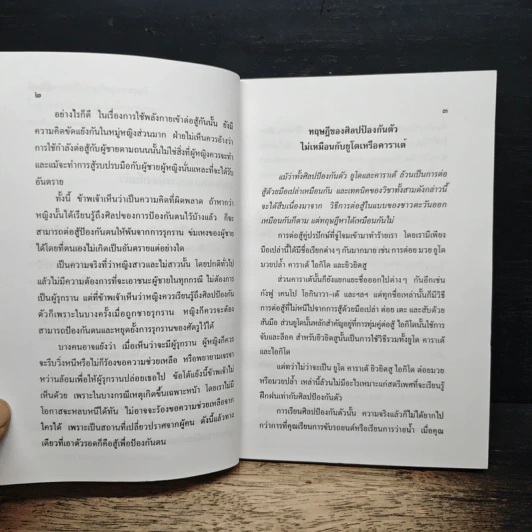 ๒
อย่างไรก็ดี ในเรื่องการใช้พลังกายเข้าต่อสู้กันนั้น ยังมี
ความคิดขัดแย้งกันในหมู่หญิงส่วนมาก ฝ่ายไม่เห็นควรอ้างว่า
การใช้กำลังต่อสู้กับผู้ชายตามถนนนั้นไม่ใช่สิ่งที่ผู้หญิงควรจะทำ
และแม้จะทำการสู้รบปรบมือกับผู้ชายผู้หญิงนั่นแหละที่จะได้รับ
อันตราย
ทั้งนี้ ข้าพเจ้าเห็นว่าเป็นความคิดที่ผิดพลาด ถ้าหากว่า
หญิงนั้นได้เรียนรู้ถึงศิลปของการป้องกันตนไว้บ้างแล้ว ก็จะ
สามารถต่อสู้ป้องกันตนให้พ้นจากการรุกราน ข่มเหงของผู้ชาย
ได้โดยที่ตนเองไม่เกิดเป็นอันตรายแต่อย่างใด
เป็นความจริงที่ว่าหญิงสาวและไม่สาวนั้น โดยปกติทั่วไป
แล้วไม่มีความต้องการที่จะเอาชนะผู้ชายในทุกกรณี ไม่ต้องการ
เป็นผู้รุกราน แต่ที่ข้าพเจ้าเห็นว่าหญิงควรเรียนรู้ถึงศิลปป้องกัน
ตัวก็เพราะในบางครั้งเมื่อถูกชายรุกราน หญิงก็ควรจะต้อง
สามารถป้องกันตนและหยุดยั้งการรุกรานของศัตรูไว้ได้
บางคนอาจแย้งว่า เมื่อเห็นว่าจะมีผู้รุกราน ผู้หญิงก็ควร
จะรีบวิ่งหนีหรือไม่ก็ร้องขอความช่วยเหลือ หรือพยายามเจรจา
หว่านล้อมเพื่อให้ผู้รุกรานปล่อยเธอไป ข้อโต้แย้งนี้ข้าพเจ้าไม่
เห็นด้วย เพราะในบางกรณีเหตุเกิดขึ้นเฉพาะหน้า โดยเราไม่มี
โอกาสจะหลบหนีได้ทัน ไม่อาจจะร้องขอความช่วยเหลือจาก
ใครได้ เพราะเป็นสถานที่เปลี่ยวปราศจากผู้คน ดังนี้แล้วทาง
เดียวที่เอาตัวรอดก็คือสู้เพื่อป้องกันตน
๓
ทฤษฎีของศิลปป้องกันตัว
ไม่เหมือนกับยูโดหรือคาราเต้
แม้ว่าทั้งศิลปป้องกันตัว ยูโดและคาราเต้ ล้วนเป็นการต่อ
สู้ด้วยมือเปล่าเหมือนกัน และเทคนิคของวิชาทั้งสามดังกล่าวนี้
จะได้สืบเนื่องมาจาก วิธีการต่อสู้ในแบบของชาวตะวันออก
เหมือนกันก็ตาม แต่ทฤษฎีหาได้เหมือนกันไม่
การต่อสู้คู่ปรปักษ์ที่จู่โจมเข้ามาทำร้ายเรา โดยเรามีเพียง
มือเปล่านี้ได้มีชื่อเรียกต่าง ๆ กันมากมาย เช่น การต่อย มวย ยูโด
มวยปล้ำ คาราเต้ ไอกิโด และยิวยิตสู
ส่วนคาราเต้นั้นก็ยังแยกและชื่อออกไปต่าง ๆ กันอีกเช่น
กังฟู เคนโป โอกินาวา-เต้ และฯลฯ แต่ทุกชื่อเหล่านั้นก็มีวิธี
การต่อสู้ที่หนีไปจากการสู้ด้วยมือเปล่า ต่อย เตะ และสับด้วย
สันมือ ส่วนยูโดนั้นหลักสำคัญอยู่ที่การทุ่มคู่ต่อสู้ ไอกิโดนั้นใช้การ
จับและล็อค สำหรับยิวยิตสูนั้นเป็นการใช้วิธีรวมทั้งยูโด คาราเต้
และไอกิโด
แต่ทว่าไม่ว่าจะเป็น ยูโด คาราเต้ ยิวยิตสู ไอกิโด ต่อยมวย
หรือมวยปล้ำ เหล่านี้ล้วนไม่มีอะไรเหมาะแก่สตรีเพศที่จะเรียนรู้
ฝึกฝนเท่ากับศิลปป้องกันตัว
การเรียนศิลปป้องกันตัวนั้น ความจริงแล้วก็ไม่ได้ยากไป
กว่าการที่คุณเรียนการขับรถยนต์หรือเรียนการว่ายน้ำ เมื่อคุณ